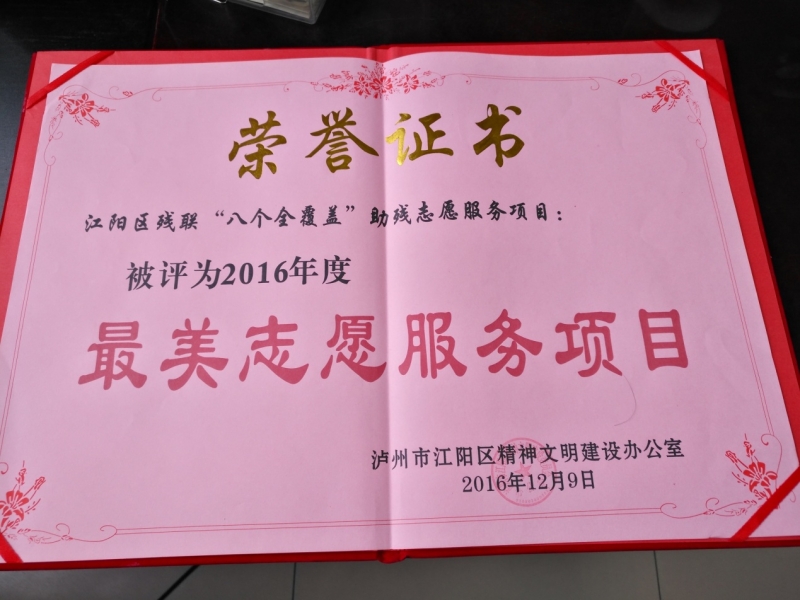 荣誉证书
江阳区残联“八个全覆盖”助残志愿服务项目：
被评为2016年度
最美志愿服务项目
泸州市江阳区精神文明建设办公室
2016年12月9日